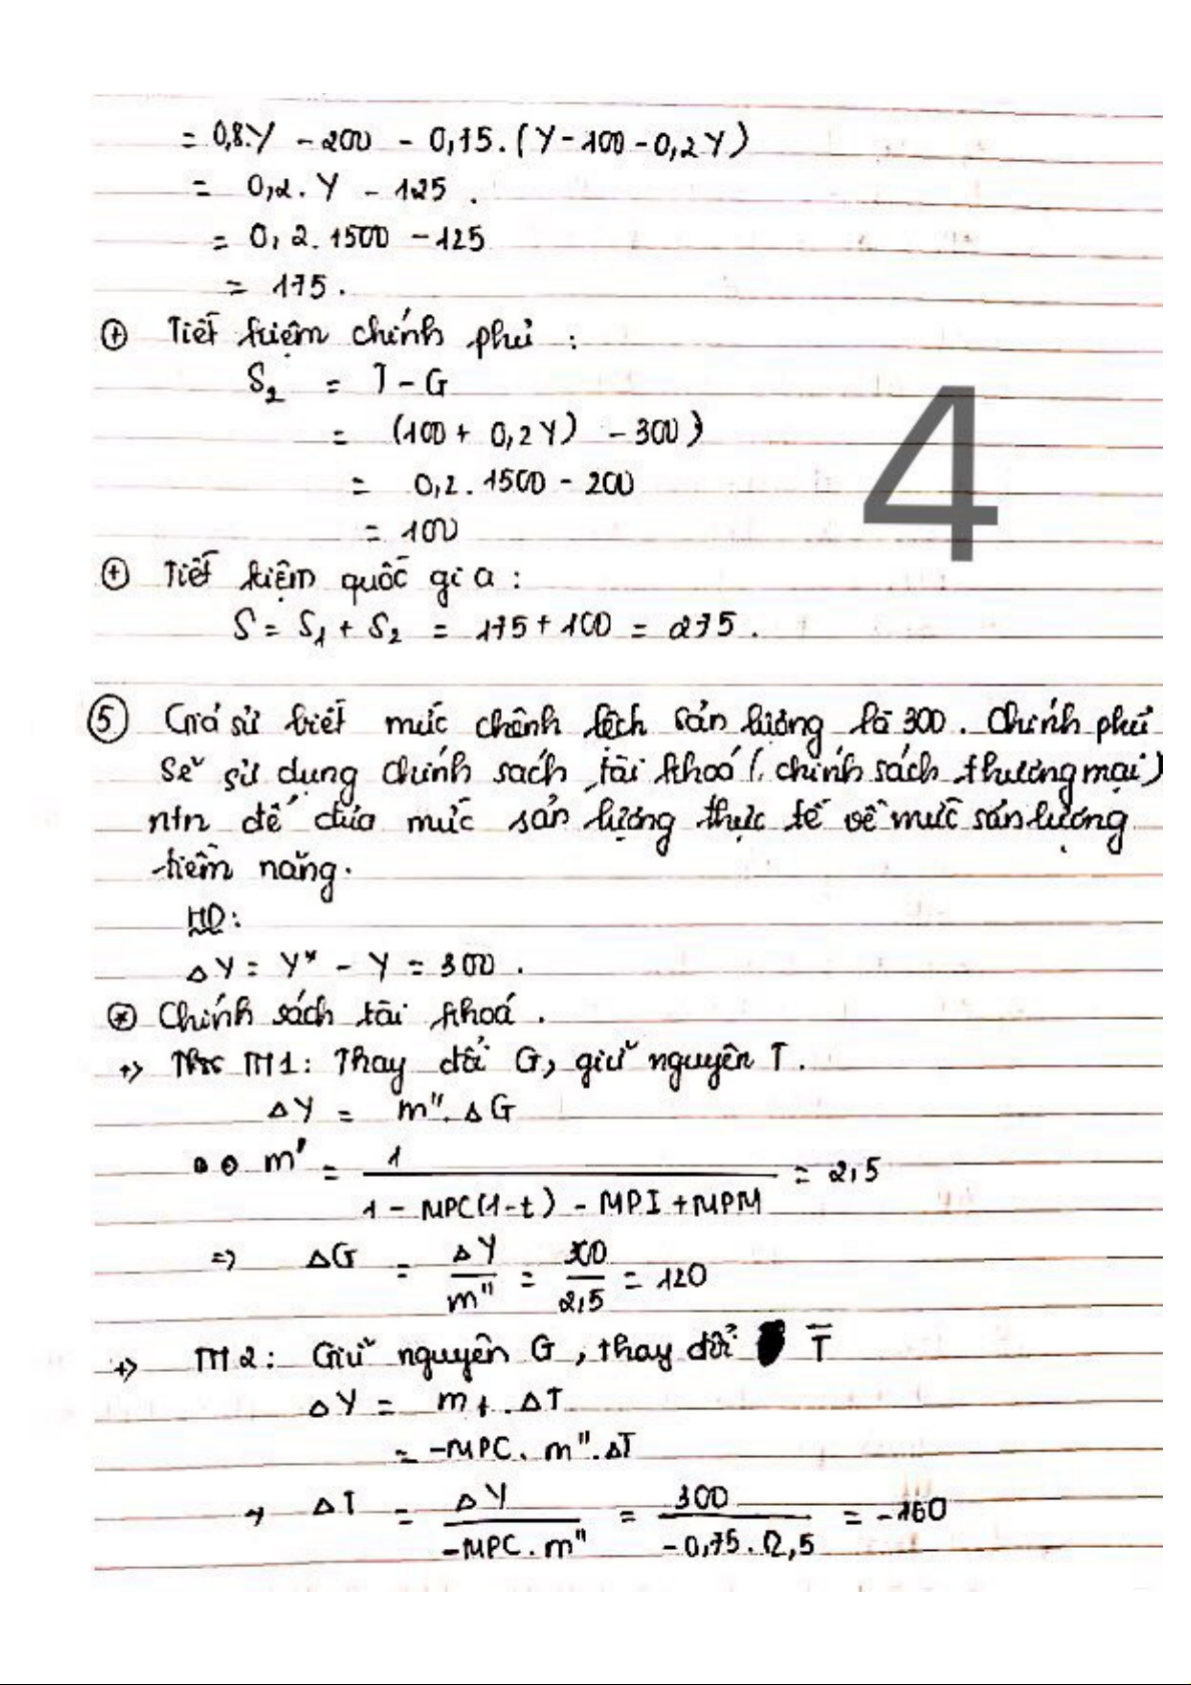 = 0,8.Y - 200 - 0,75.(Y-100-0,2Y)
= 0,2.Y - 125.
= 0,2.1500 - 125
= 175.
⊕ Tiết kiệm chính phủ :
S2 = T - G
= (100 + 0,2Y) - 300)
= 0,2.1500 - 200
= 100
⊕ Tiết kiệm quốc gia :
S = S1 + S2 = 175 + 100 = 275.
4
⑤ Giả sử biết mức chênh lệch sản lượng là 300. Chính phủ
Sẽ sử dụng chính sách tài khoá (chính sách thương mại)
ntn để đưa mức sản lượng thực tế về mức sản lượng
tiềm năng.
HD:
ΔY = Y* - Y = 300.
⊛ Chính sách tài khoá.
+> TH1: Thay đổi G, giữ nguyên T.
ΔY = m''.ΔG
m' = 1 / (1 - MPC(1-t) - MPI + MPM) = 2,5
=> ΔG = ΔY / m'' = 300 / 2,5 = 120
+> TH2: Giữ nguyên G, thay đổi T̅
ΔY = mt.ΔT
= -MPC.m''.ΔT
→ ΔT = ΔY / (-MPC.m'') = 300 / (-0,75.2,5) = -160